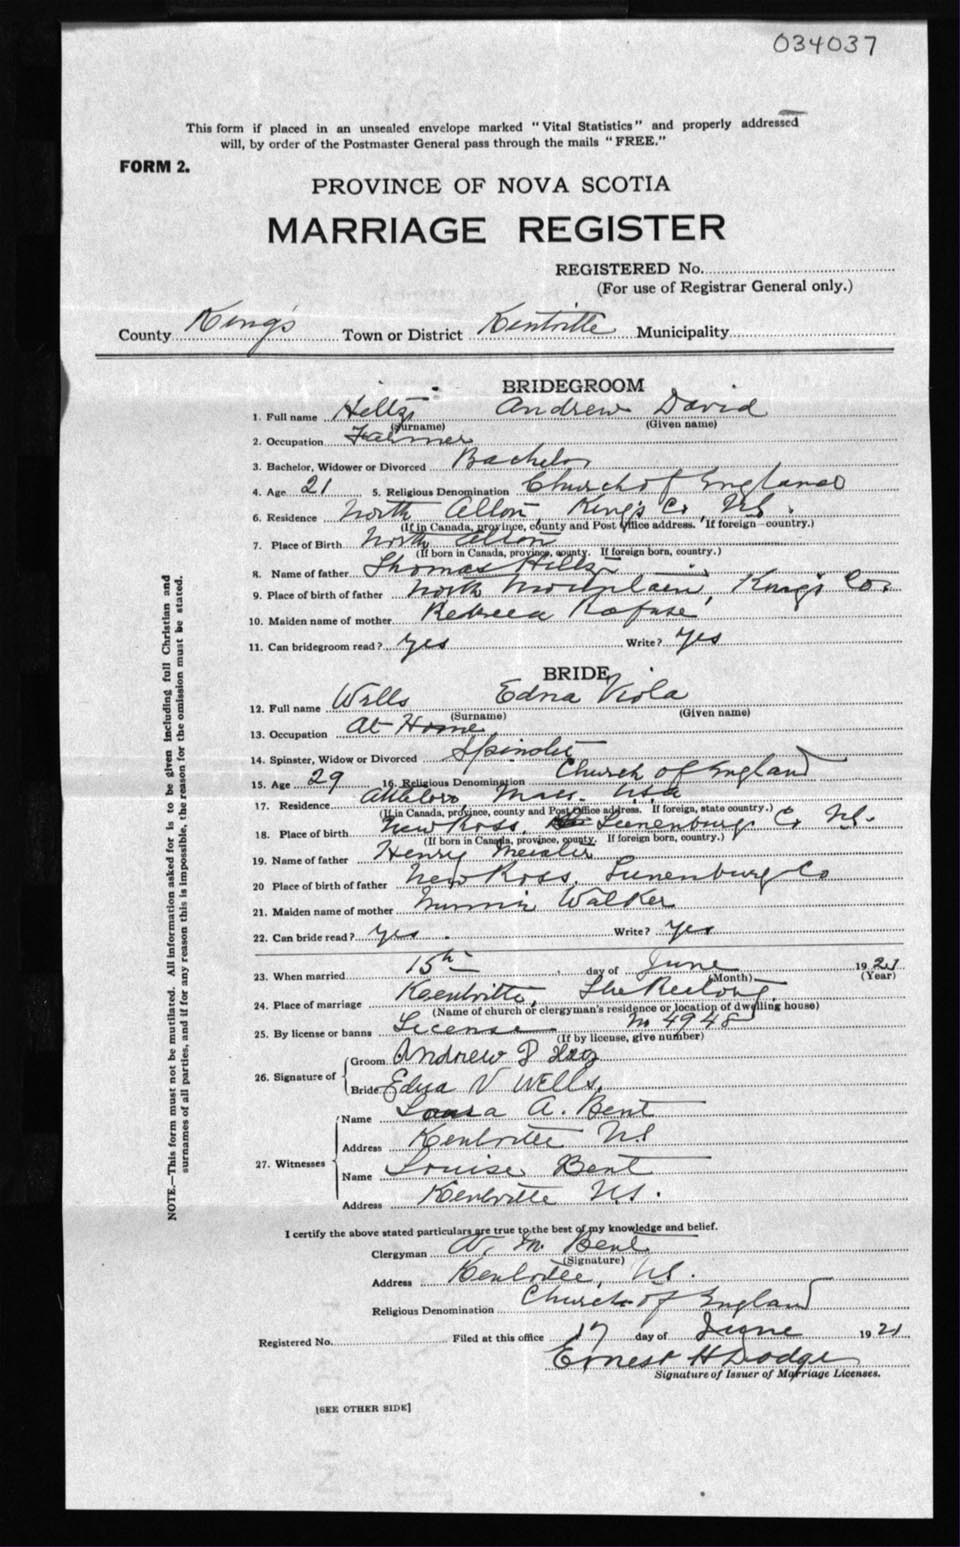 034037
This form if placed in an unsealed envelope marked "Vital Statistics" and properly addressed
will, by order of the Postmaster General pass through the mails "FREE."
FORM 2.
PROVINCE OF NOVA SCOTIA
MARRIAGE REGISTER
REGISTERED No.
(For use of Registrar General only.)
County King's Town or District Kentville Municipality
BRIDEGROOM
1. Full name Hiltz Andrew David
(Surname) (Given name)
2. Occupation Farmer
3. Bachelor, Widower or Divorced Bachelor
4. Age 21 5. Religious Denomination Church of England
6. Residence North Alton King's Co, N.S.
(If in Canada, province, county and Post Office address. If foreign—country.)
7. Place of Birth North Alton
(If born in Canada, province, county. If foreign born, country.)
8. Name of father Thomas Hiltz
9. Place of birth of father North Mountain, King's Co.
10. Maiden name of mother Rebecca Rafuse
11. Can bridegroom read? yes Write? yes
BRIDE
12. Full name Wells Edna Viola
(Surname) (Given name)
13. Occupation At Home
14. Spinster, Widow or Divorced Spinster
15. Age 29 16. Religious Denomination Church of England
17. Residence Attleboro, Mass. USA
(If in Canada, province, county and Post Office address. If foreign, state country.)
18. Place of birth New Ross, Lunenburg Co N.S.
(If born in Canada, province, county. If foreign born, country.)
19. Name of father Henry Meister
20 Place of birth of father New Ross, Lunenburg Co
21. Maiden name of mother Walker
22. Can bride read? yes. Write? yes
23. When married 15th day of June 1921
(Month) (Year)
24. Place of marriage Kentville, The Rectory
(Name of church or clergyman's residence or location of dwelling house)
25. By license or banns License No 4948
(If by license, give number)
26. Signature of
Groom Andrew D
Bride Edna V Wells.
27. Witnesses
Name Laura A. Bent
Address Kentville N.S
Name Louise Bent
Address Kentville N.S.
I certify the above stated particulars are true to the best of my knowledge and belief.
Clergyman A. M. Bent
(Signature)
Address Kentville, N.S.
Religious Denomination Church of England
Registered No. Filed at this office 17 day of June 1921
Ernest H Dodge
Signature of Issuer of Marriage Licenses.
[SEE OTHER SIDE]
NOTE.—This form must not be mutilated. All information asked for is to be given including full Christian and
surnames of all parties, and if for any reason this is impossible, the reason for the omission must be stated.